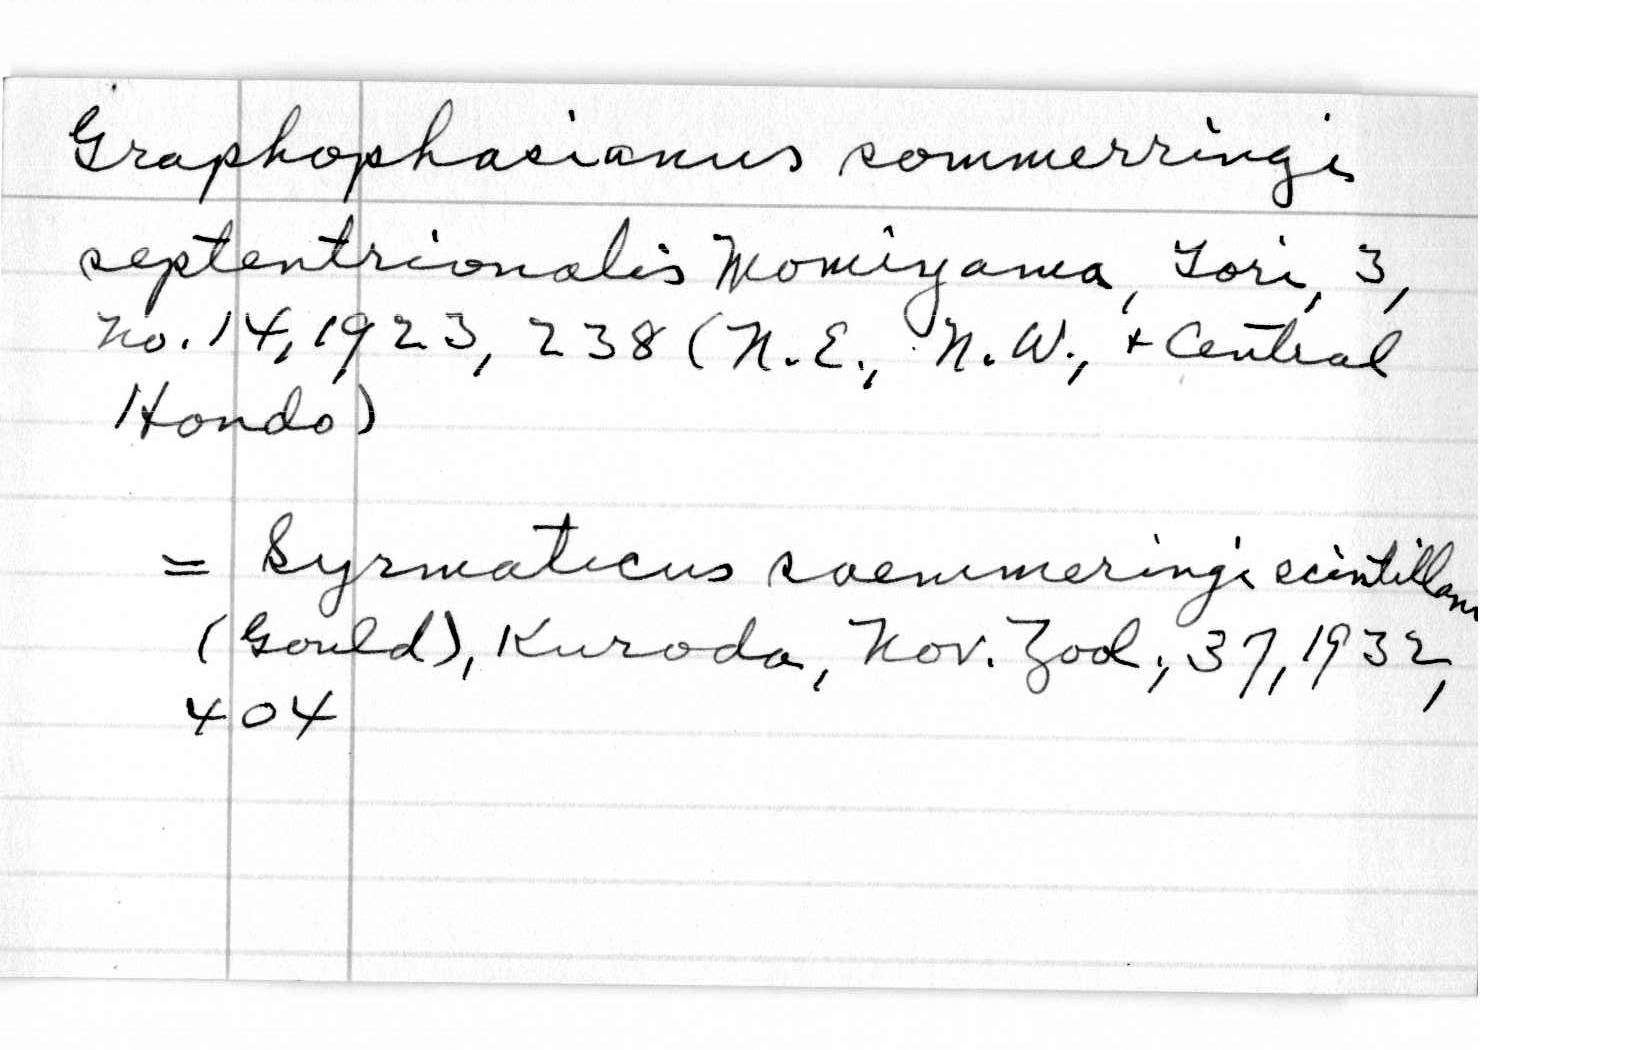 Graphophasianus sommerringi
septentrionalis Momiyama, Tori, 3,
No. 14, 1923, 238 (N.E., N.W., + Central
Hondo)
= Syrmaticus soemmeringi scintillans
(Gould), Kuroda, Nov. Zool., 37, 1932,
404